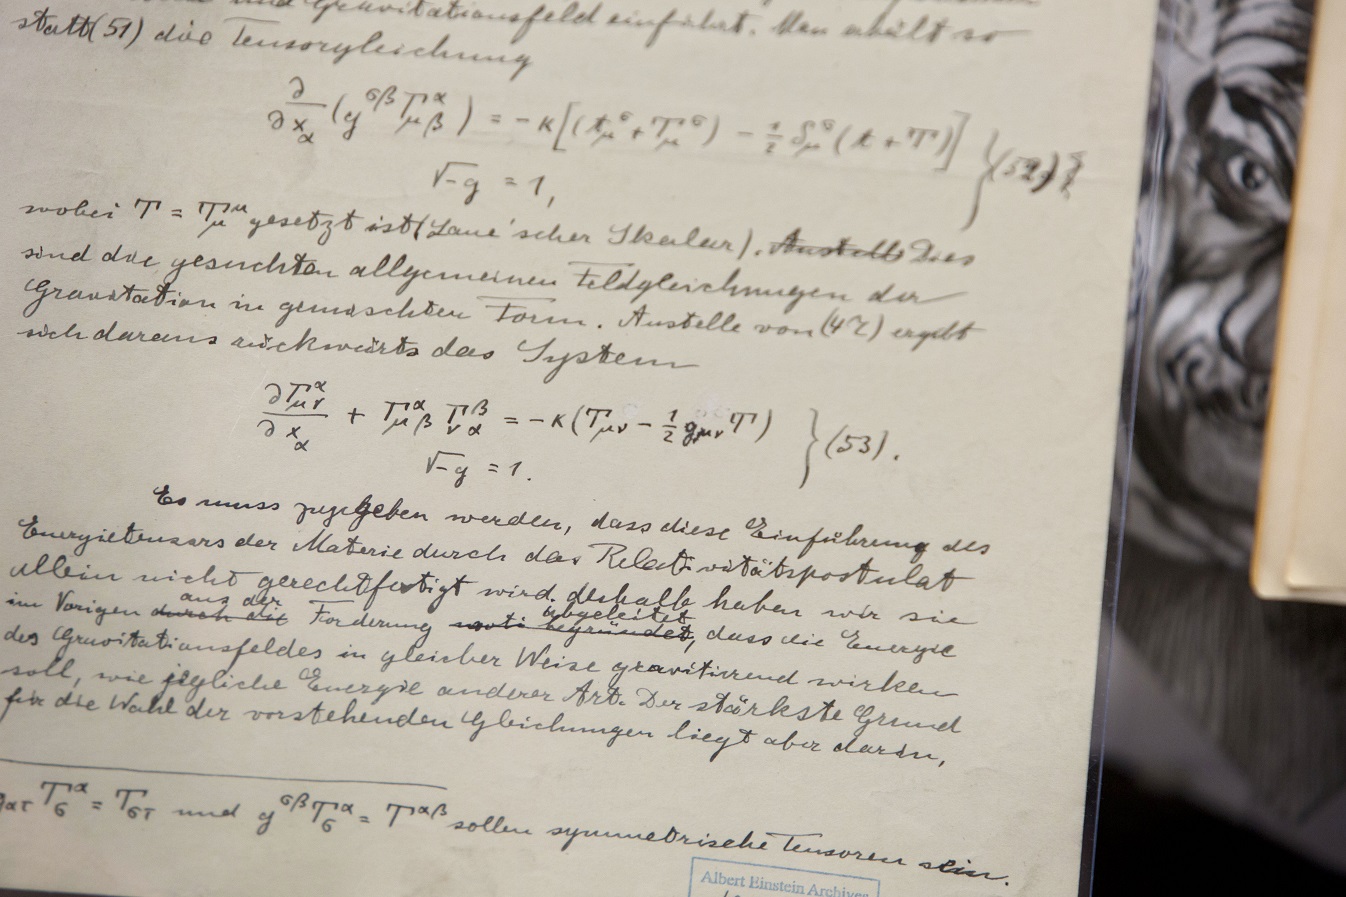 und Gravitationsfeld einführt. Man erhält so
statt (51) die Tensorgleichung
∂/∂x_α (g^{σβ} Γ_{μβ}^α) = -κ[(t_μ^σ + T_μ^σ) - 1/2 δ_μ^σ (t + T)] } (52)
√-g = 1,
wobei T = T_μ^μ gesetzt ist (Laue'scher Skalar). Anstelle Dies
sind die gesuchten allgemeinen Feldgleichungen der
Gravitation in gemischten Form. Anstelle von (47) ergibt
sich daraus rückwärts das System
∂Γ_{μν}^α/∂x_α + Γ_{μβ}^α Γ_{να}^β = -κ(T_{μν} - 1/2 g_{μν} T) } (53).
√-g = 1.
Es muss zugegeben werden, dass diese Einführung des
Energietensors der Materie durch das Relativitätspostulat
allein nicht gerechtfertigt wird. deshalb haben wir sie
aus der abgeleitet
im Vorigen durch die Forderung begründet, dass die Energie
des Gravitationsfeldes in gleicher Weise gravitierend wirken
soll, wie jegliche Energie anderer Art. Der stärkste Grund
für die Wahl der vorstehenden Gleichungen liegt aber darin,
g_{ατ} T_σ^α = T_{στ} und g^{σβ} T_σ^α = T^{αβ} sollen symmetrische Tensoren sein.
Albert Einstein Archives